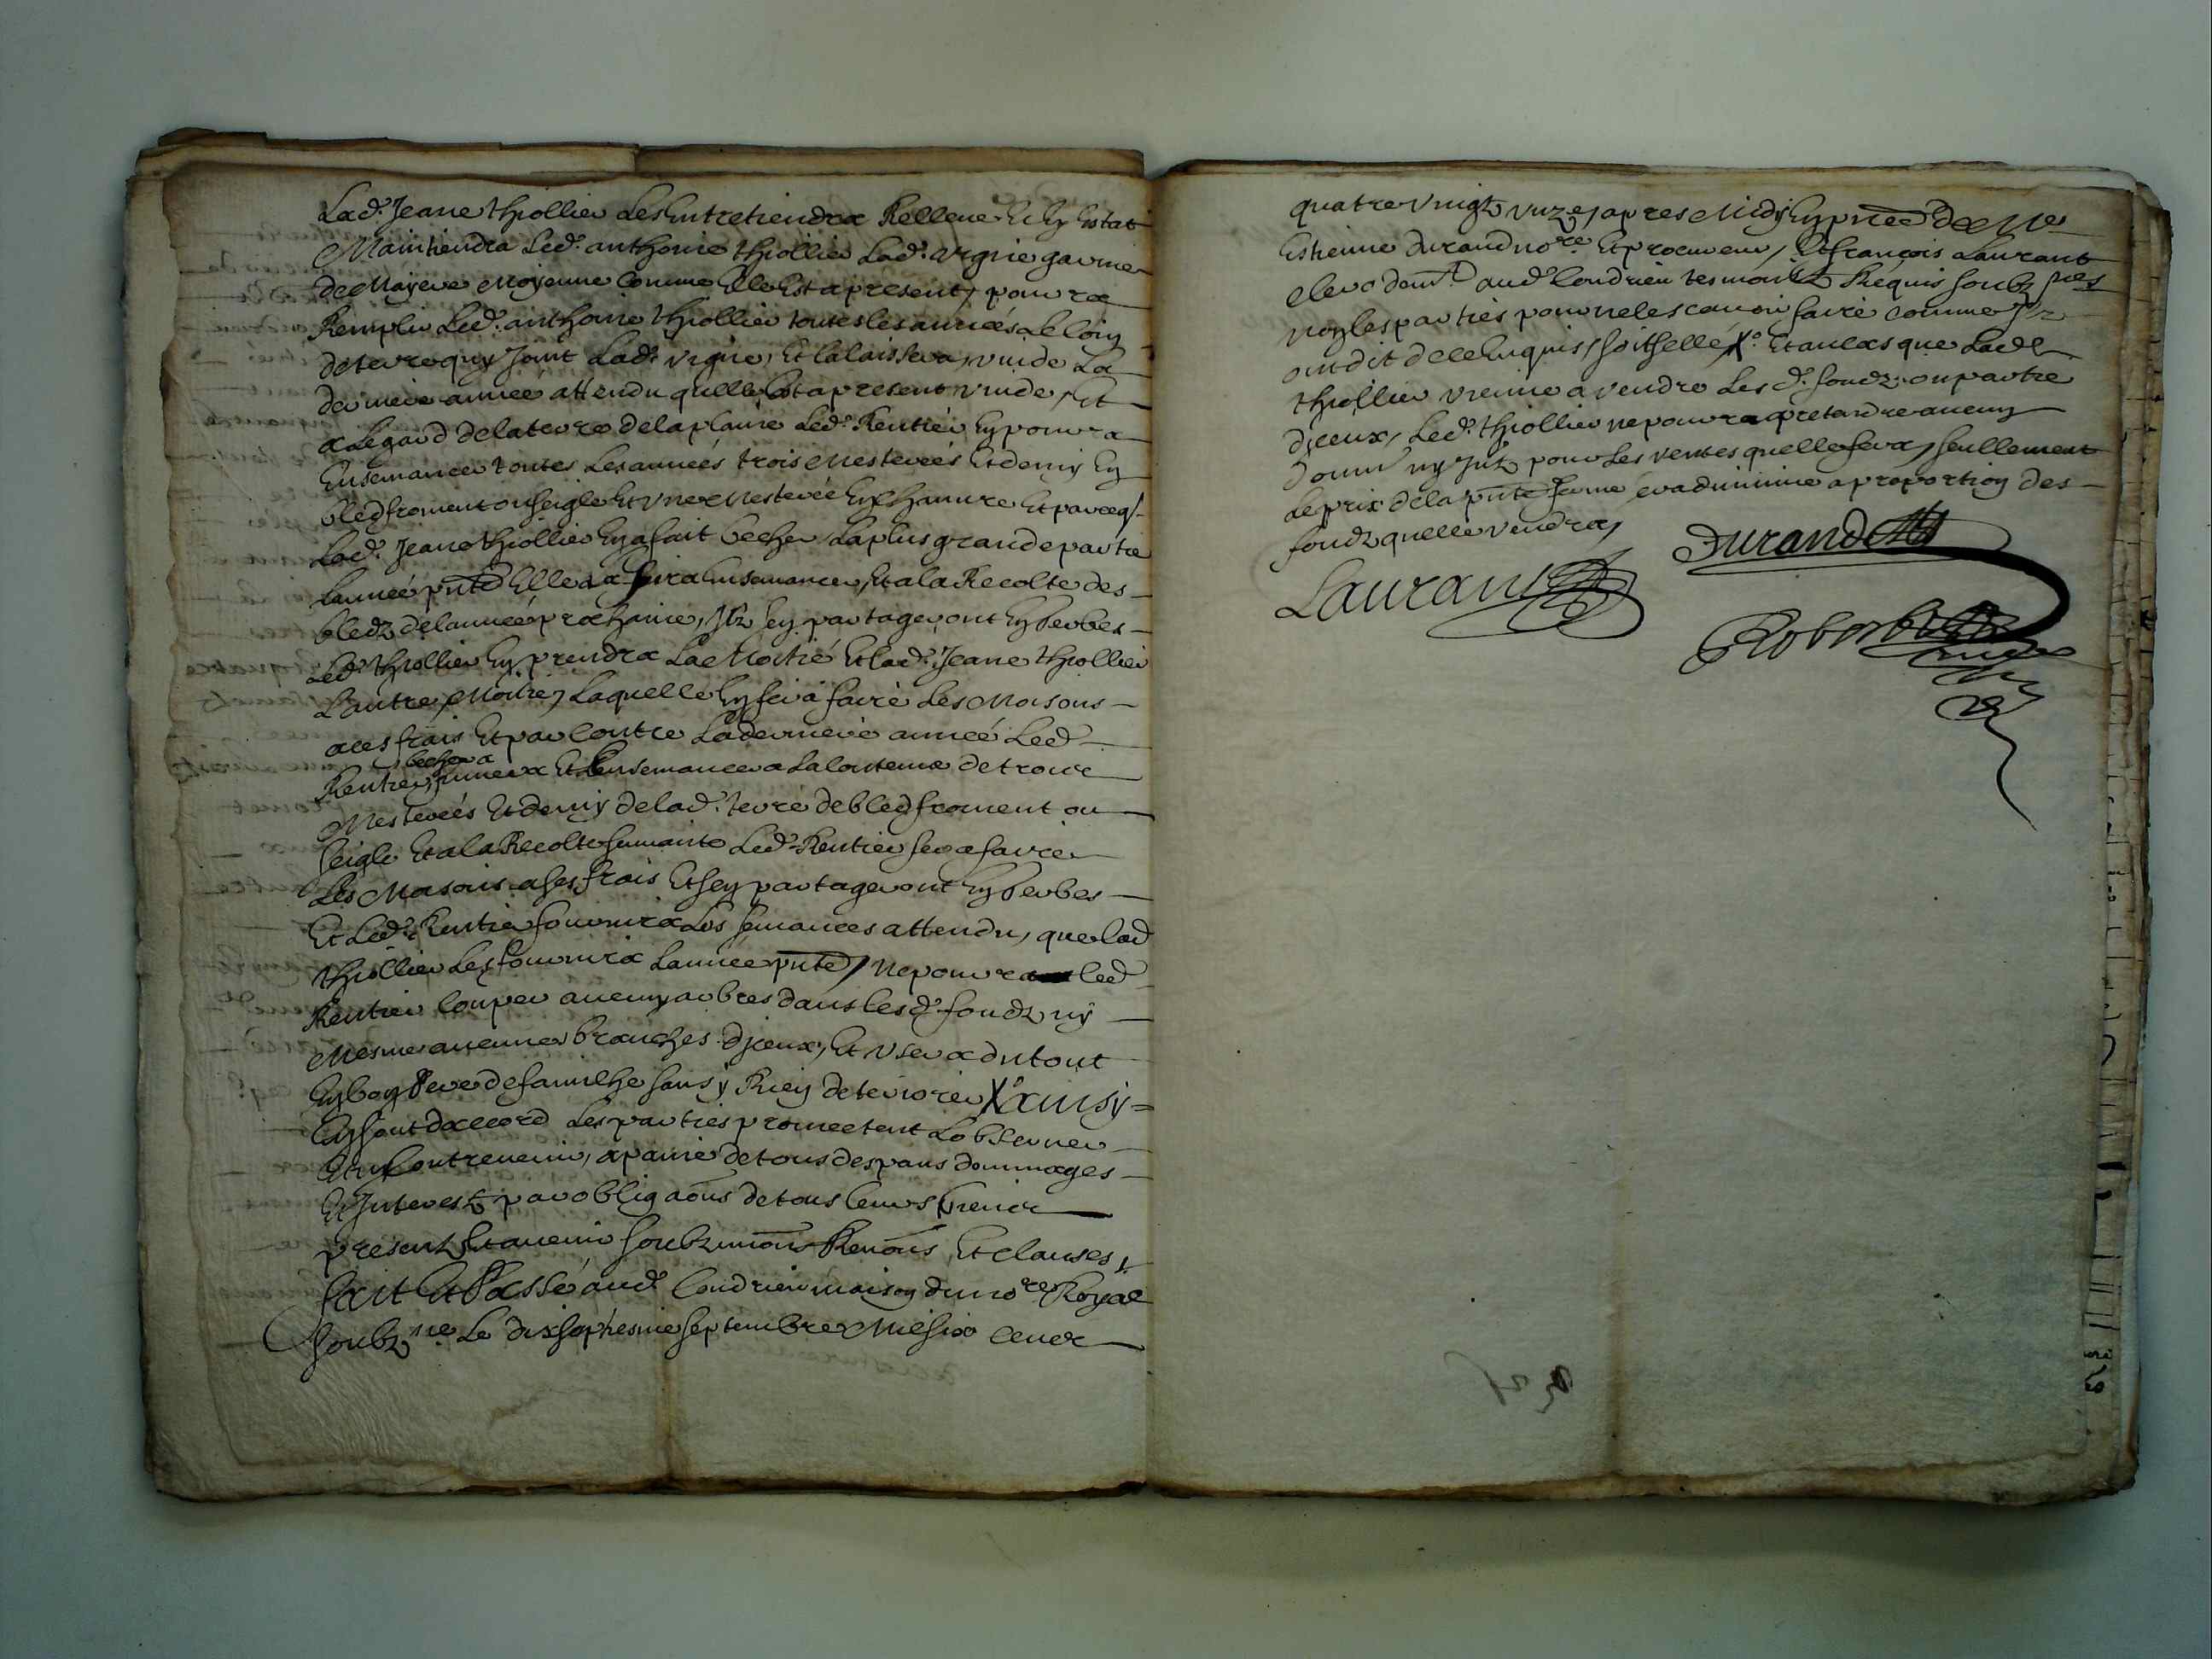 Lad.e Jeane thiollier Les Entretiendra Rellever Et En Estat
Maintiendra Led.t anthoine thiollier Lad.e vignie garnie
de Mayere Moyenne Comme Elle Est a present, pourra
Remplir Led.t anthoine thiollier toutes les années le loing
de terre quy Joint Lad.e vigne, Et la laissera, vuide La
derniere année attendu quelle Est a present vuide, Et
a Legard de la terre de la plaine Led.t Rentier En pourra
Ensemancer toutes Les années trois Mesterées Et demy En
bled froment ou seigle Et Une Mesterée En Chanvre Et parce q/
Lad.e Jeane thiollier En a fait becher La plus grande partie
Lannée p̄nte Elle La faira Ensemancer, Et a la Recolte des
bledz de lannée prochaine, Ilz sen partageront En Gerbes
Led.t thiollier En prendra La Moitié Et lad.e Jeane thiollier
Lautre Moitié, Laquelle En fera faire Les Moisons
a ces frais Et par Contre La derniere année Led.
bechera
Rentier, fumera Et Ensemancera La Contenue de trois
Mesterées Et demy de lad.e terre de bled froment ou
seigle Et a la Recolte suivante Led.t Rentier fera faire
Les Moisons a ses frais Et sen partageront En Gerbes
Et Led.t Rentier fournira Les semances attendu, que lad
thiollier Les fournira Lannée p̄nte, Ne pourra led
Rentier Couper aucuns arbres dans lesd.s fondz ny
Mesme aucunes branches djceux, Et Usera du tout
En bon Pere de familhe sans y Rien deteriorer X.o ainsy=
En sont daccord Les parties promettent Lobserver
Et ny Contrevenir, a paine de tous despans dommages
Et Interestz par obligaōns de tous leurs biens
presentz Et avenir soubzmiōns Renōns, Et clauses,
fait Et Passé aud.t Condrieu maison du no.re Royal
soubz.né Le dixseptiesme septembre Mil six Cent
quatre vingtz unze, apres Midy En p̄nce de Me
Estienne durand no.re Et procureur, Et françois Laurant
clerc dem.t aud.t Condrieu tesmointz Requis soubz.nés
non les parties pour ne le scavoir faire comme Ilz
ont dit de ce Enquis, soit sellé X.o Et au Cas que Lad.e
thiollier vienne a vendre Les d.s fondz ou partie
djceux, Led.t thiollier ne pourra pretandre aucuns
domm ny Intz pour Les ventes quelle fera, seullement
Le prix de la p̄nte ferme sera diminué a proportion des
fondz quelle vendra,
Durand
Laurant
Robert